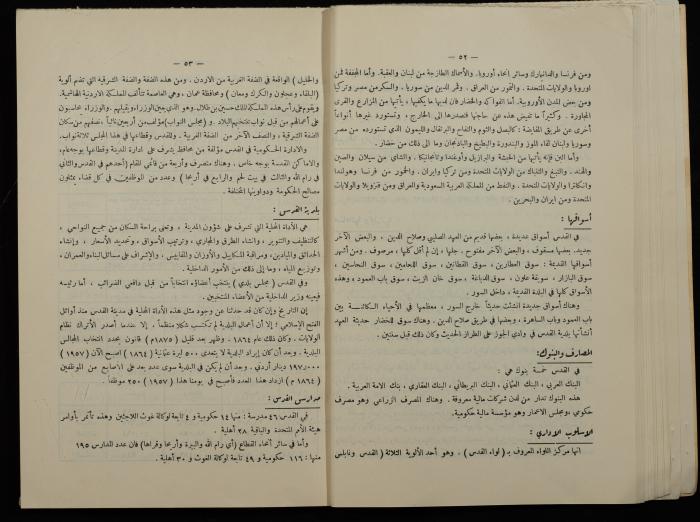 — ٥٢ —
ومن فرنسا والدانيمارك وسائر انحاء أوروبا. والأسماك الطازجة من لبنان والعقبة. وأما المجففة فمن
اوروبا والولايات المتحدة. والتمور من العراق. وقمر الدين من سوريا. والسكر من مصر وتركيا
ومن بعض المدن الأوروبية. أما الفواكه والخضار فان لديها ما يكفيها، يأتيها من المزارع والقرى
المجاورة. وكثيراً ما تفيض هذه عن حاجتها فتصدرها الى الخارج، وتستورد غيرها أنواعاً
أخرى عن طريق المقايضة: كالبصل والثوم والتفاح والبرتقال والليمون الذي تستورده من مصر
وسوريا ولبنان لقاء الموز والبندورة والبطيخ والباذنجان وما الى ذلك من خضار.
وأما البن فإنه يأتيها من الحبشة والبرازيل وأوغندا وتانجانيكا. والشاي من سيلان والصين
والهند. والتبغ والتنباك من الولايات المتحدة ومن تركيا وايران. والخمور من فرنسا وهولندا
وانكلترا والولايات المتحدة. والنفط من المملكة العربية السعودية والعراق ومن فنزويلا والولايات
المتحدة ومن ايران والبحرين.
أسواقها:
في القدس أسواق عديدة، بعضها قديم من العهد الصليبي وصلاح الدين، والبعض الآخر
جديد. بعضها مسقوف، والبعض الآخر مفتوح. جلها، إن لم أقل كلها، مرصوف. ومن أشهر
أسواقها القديمة: سوق العطارين، سوق القطانين، سوق اللحامين، سوق النحاسين،
سوق البازار، سويقة علون، سوق الدباغة، سوق خان الزيت، سوق باب العمود، وهذه
الأسواق كلها في البلدة القديمة، داخل السور.
وهناك أسواق جديدة انشئت حديثاً خارج السور، معظمها في الأحياء الكائنة بين
باب العمود وباب الساهرة، وبعضها في طريق صلاح الدين. وهناك سوق للخضار حديثة العهد
أنشأتها بلدية القدس في وادي الجوز على الطراز الحديث وكان ذلك قبل سنتين.
المصارف والبنوك:
في القدس خمسة بنوك هي:
البنك العربي، البنك العثماني، البنك البريطاني، البنك العقاري، بنك الامة العربية.
هذه البنوك تدار من لدن شركات مالية معروفة. وهناك المصرف الزراعي وهو مصرف
حكومي، ومجلس الاعمار وهو مؤسسة مالية حكومية.
الاسلوب الاداري:
انها مركز اللواء المعروف بـ (لواء القدس). وهو أحد الألوية الثلاثة (القدس ونابلس
— ٥٣ —
والخليل) الواقعة في الضفة الغربية من الاردن. ومن هذه الضفة والضفة الشرقية التي تضم ألوية
(البلقاء وعجلون والكرك ومعان) ومحافظة عمان، وهي العاصمة تتألف المملكة الاردنية الهاشمية.
ويقوم على رأس هذه المملكة الملك حسين بن طلال. وهو الذي يعين الوزراء ويقيلهم. والوزراء يحاسبون
على أعمالهم من قبل نواب تنتخبهم البلاد. و(مجلس النواب) مؤلف من أربعين نائباً، نصفهم من سكان
الضفة الشرقية، والنصف الآخر من الضفة الغربية. وللقدس وقطاعها في هذا المجلس ثلاثة نواب.
والادارة الحكومية في القدس مؤلفة من محافظ يشرف على ادارة المدينة وقطاعها بوجه عام،
والاماكن المقدسة بوجه خاص. وهناك متصرف وأربعة من قائمي المقام (أحدهم في القدس والثاني
في رام الله والثالث في بيت لحم والرابع في أريحا) وعدد من الموظفين في كل قضاء يمثلون
مصالح الحكومة ودواوينها المختلفة.
بلدية القدس:
هي الأداة المحلية التي تشرف على شؤون المدينة، وتعنى براحة السكان من جميع النواحي،
كالتنظيف والتنوير، وانشاء الطرق والمجاري، وترتيب الأسواق، وتحديد الأسعار، وإنشاء
الحدائق والميادين، ومراقبة المكاييل والأوزان والمقاييس، والإشراف على مسائل البناء والعمران،
وتوزيع المياه، وما إلى ذلك من الأمور الداخلية.
وفي القدس (مجلس بلدي) ينتخب أعضاؤه انتخاباً من قبل دافعي الضرائب، أما رئيسه
فيعينه وزير الداخلية من الأعضاء المنتخبين.
إن التاريخ وإن كان قد حدثنا عن وجود مثل هذه الأداة المحلية في مدينة القدس منذ أوائل
الفتح الإسلامي؛ إلا أن أعمال البلدية لم تكتسب شكلا منظماً، إلا عندما أصدر الأتراك نظام
الولايات. وكان ذلك عام ١٨٦٤. وظهر بعد قليل (١٨٧٥ م) قانون يحدد انتخاب المجالس
البلدية. وبعد أن كان إيراد البلدية لا يتعدى ٥٠٠ ليرة عثمانية (١٨٦٤) أصبح الآن (١٩٥٧)
١٩٧٠٠٠ دينار أردني. وبعد أن لم يكن في البلدية سوى عدد يعد على الأصابع من الموظفين
(١٨٦٤ م) ازداد هذا العدد فأصبح في يومنا هذا (١٩٥٧) ٢٥٠ موظفاً.
مدارس القدس:
في القدس ٤٦ مدرسة: منها ١٤ حكومية و ٤ تابعة لوكالة غوث اللاجئين وهذه تأتمر بأوامر
هيئة الأمم المتحدة والباقية ٢٨ أهلية.
وأما في سائر أنحاء القطاع (أي رام الله والبيرة وأريحا وقراها) فان عدد المدارس ١٩٥
منها: ١١٦ حكومية و ٤٩ تابعة لوكالة الغوث و ٣٠ أهلية.